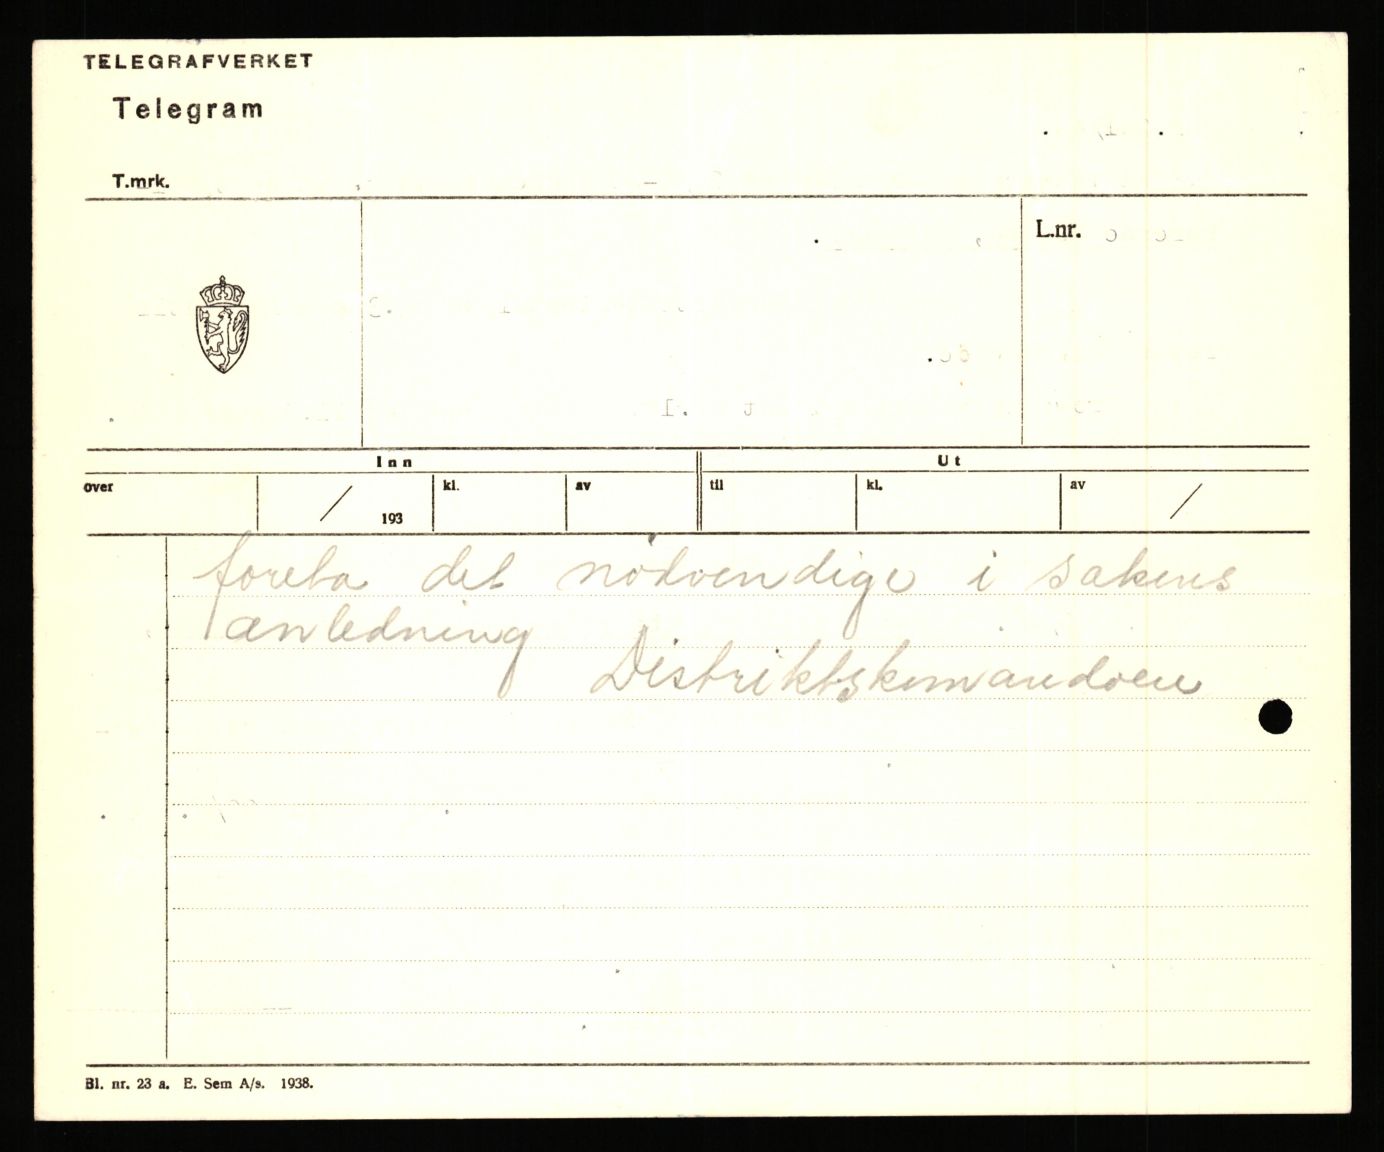 TELEGRAFVERKET
Telegram
T.mrk.
L.nr.
Inn Ut
over / 193 kl. av til kl. av /
foreta det nödvendige i sakens
anledning
Distriktskomandoen
Bl. nr. 23 a. E. Sem A/s. 1938.